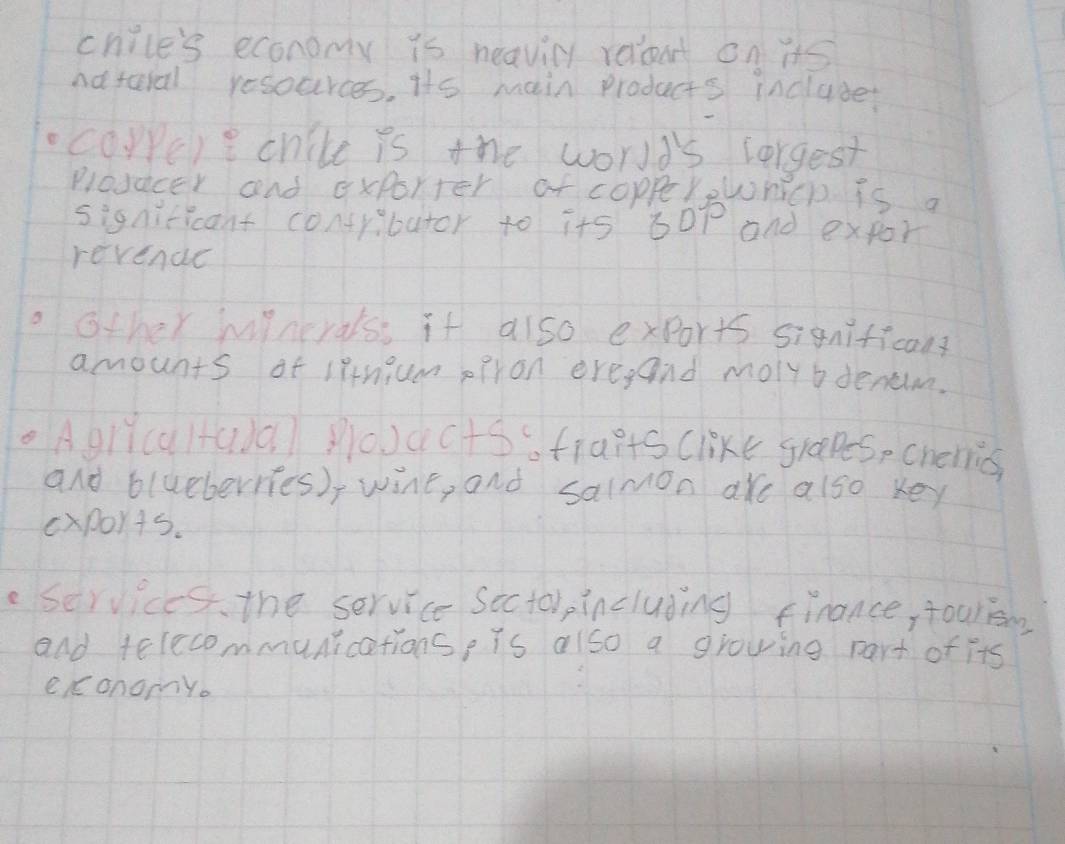 chile's economy is heavily reliant on its
natural resources. its main products include:
• copper: chile is the world's largest
producer and exporter of copper, which is a
significant contributor to its GDP and expor
revenue
• Other minerals: it also exports significant
amounts of lithium, iron ore, and molybdenum.
• Agricultural products: fruits (like grapes, cherries,
and blueberries), wine, and salmon are also key
exports.
• Services. the service sector, including finance, tourism,
and telecommunications, is also a growing part of its
economy.